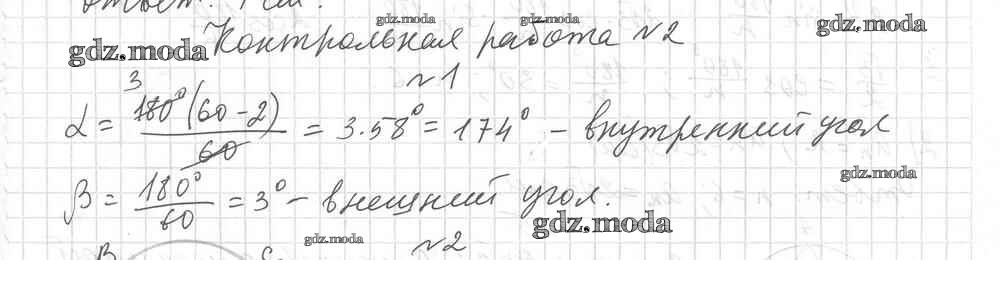 Ответ: 1 см.
gdz.moda gdz.moda gdz.moda
gdz.moda Контрольная работа №2
№1
α = 180°(60-2) / 60 = 3·58° = 174° - внутренний угол
3
gdz.moda
β = 180° / 60 = 3° - внешний угол.
gdz.moda
gdz.moda №2
B C